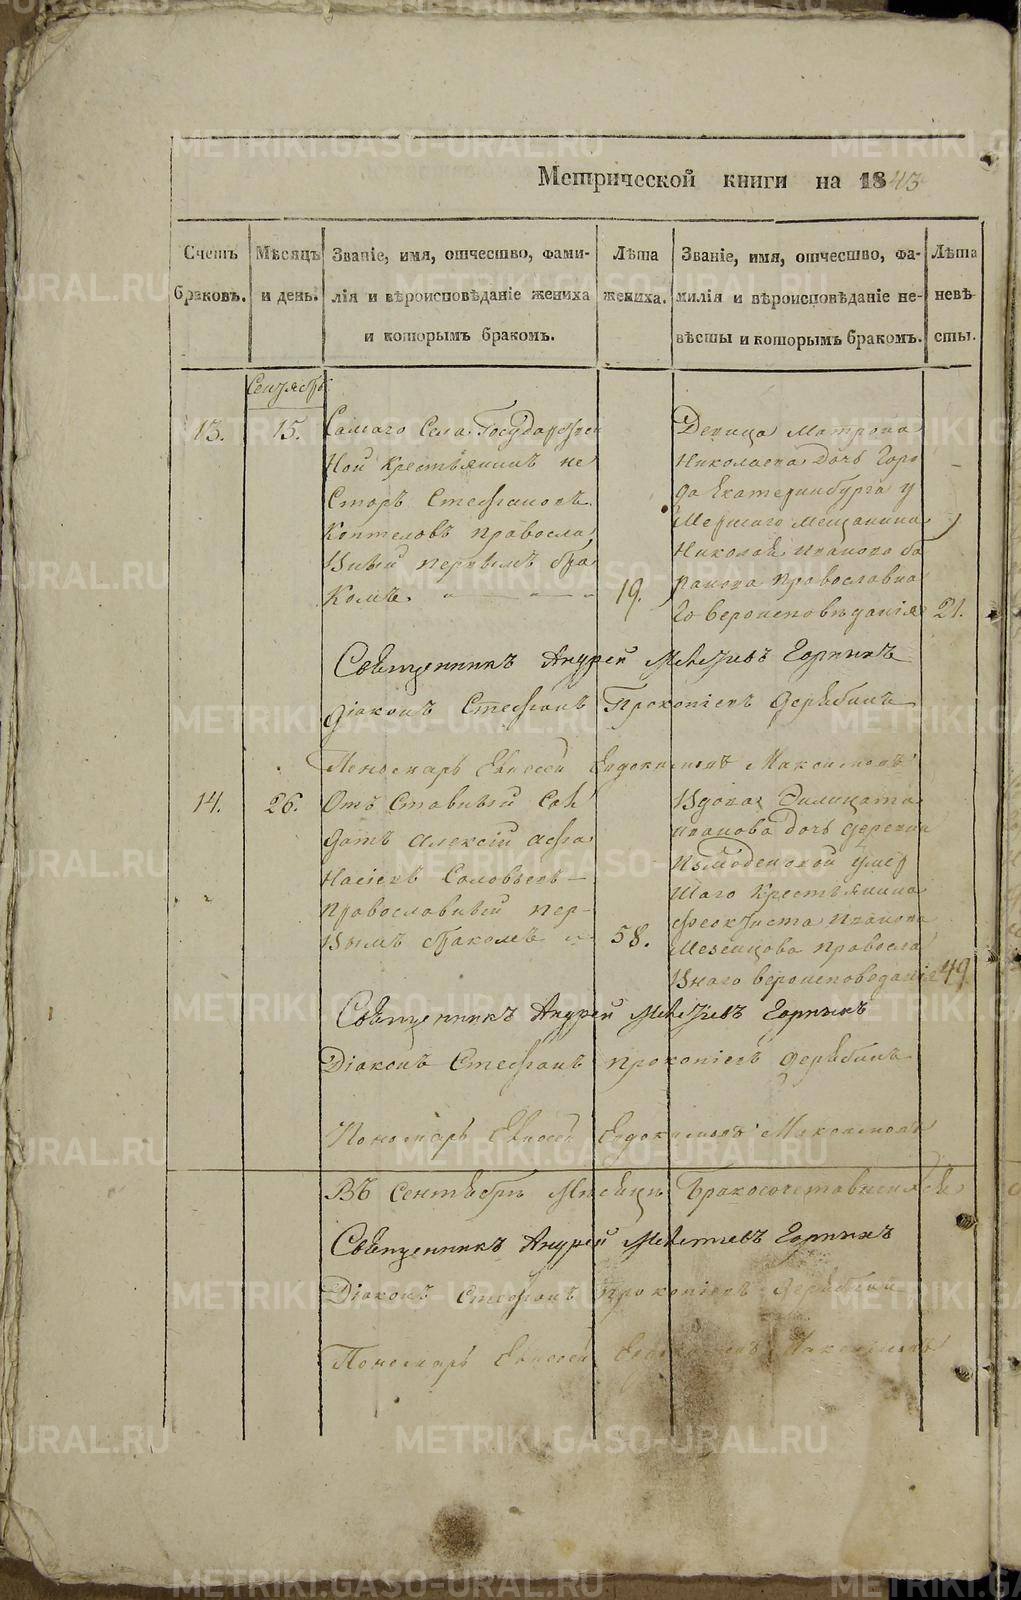 Метрической книги на 1843
Счетъ браковъ.
Мѣсяцъ и день.
Званіе, имя, отчество, фами-
лія и вѣроисповѣданіе жениха
и которымъ бракомъ.
Лѣта
жениха.
Званіе, имя, отчество, фа-
милія и вѣроисповѣданіе не-
вѣсты и которымъ бракомъ.
Лѣта
невѣ-
сты.
13.
15.
Самаго Села Государствен
Ной Крестьянинъ не
Сторъ Стефановъ
Коптеловъ Правосла
Вный первымъ бра
Комъ.
19.
Девица Матрона
Николаева Дочь Горо
да Екатеринбурга у
Мершаго Мещанина
Николая Иванова ба
ранова Православна
Го вероисповѣданія
21.
Священникъ Андрей Горныхъ
Діаконъ Стефанъ Прокопіевъ Дерябинъ
Пономарь Евсевй Евдокимовъ Максимовъ
14.
26.
Отъ Ставный Сол
Датъ Алексій Афа
Насіевъ Соловьевъ
Православный пер-
Вымъ бракомъ
58.
Вдова
иванова дочь деревни
умер
Шаго Крестьянина
Феоктиста Иванова
Мезенцова Правосла
Внаго вероисповеданія
49.
Священникъ Андрей Горныхъ
Діаконъ Стефанъ прокопіевъ Дерябинъ
Пономарь Евсевй Евдокимовъ Максимовъ
Въ Сентябрь Месяцъ
Священникъ Андрей Горныхъ
Діаконъ Стефанъ Прокопіевъ Дерябинъ
Пономарь Евсевй Евдокимовъ Максимовъ
METRIKI.GASO-URAL.RU